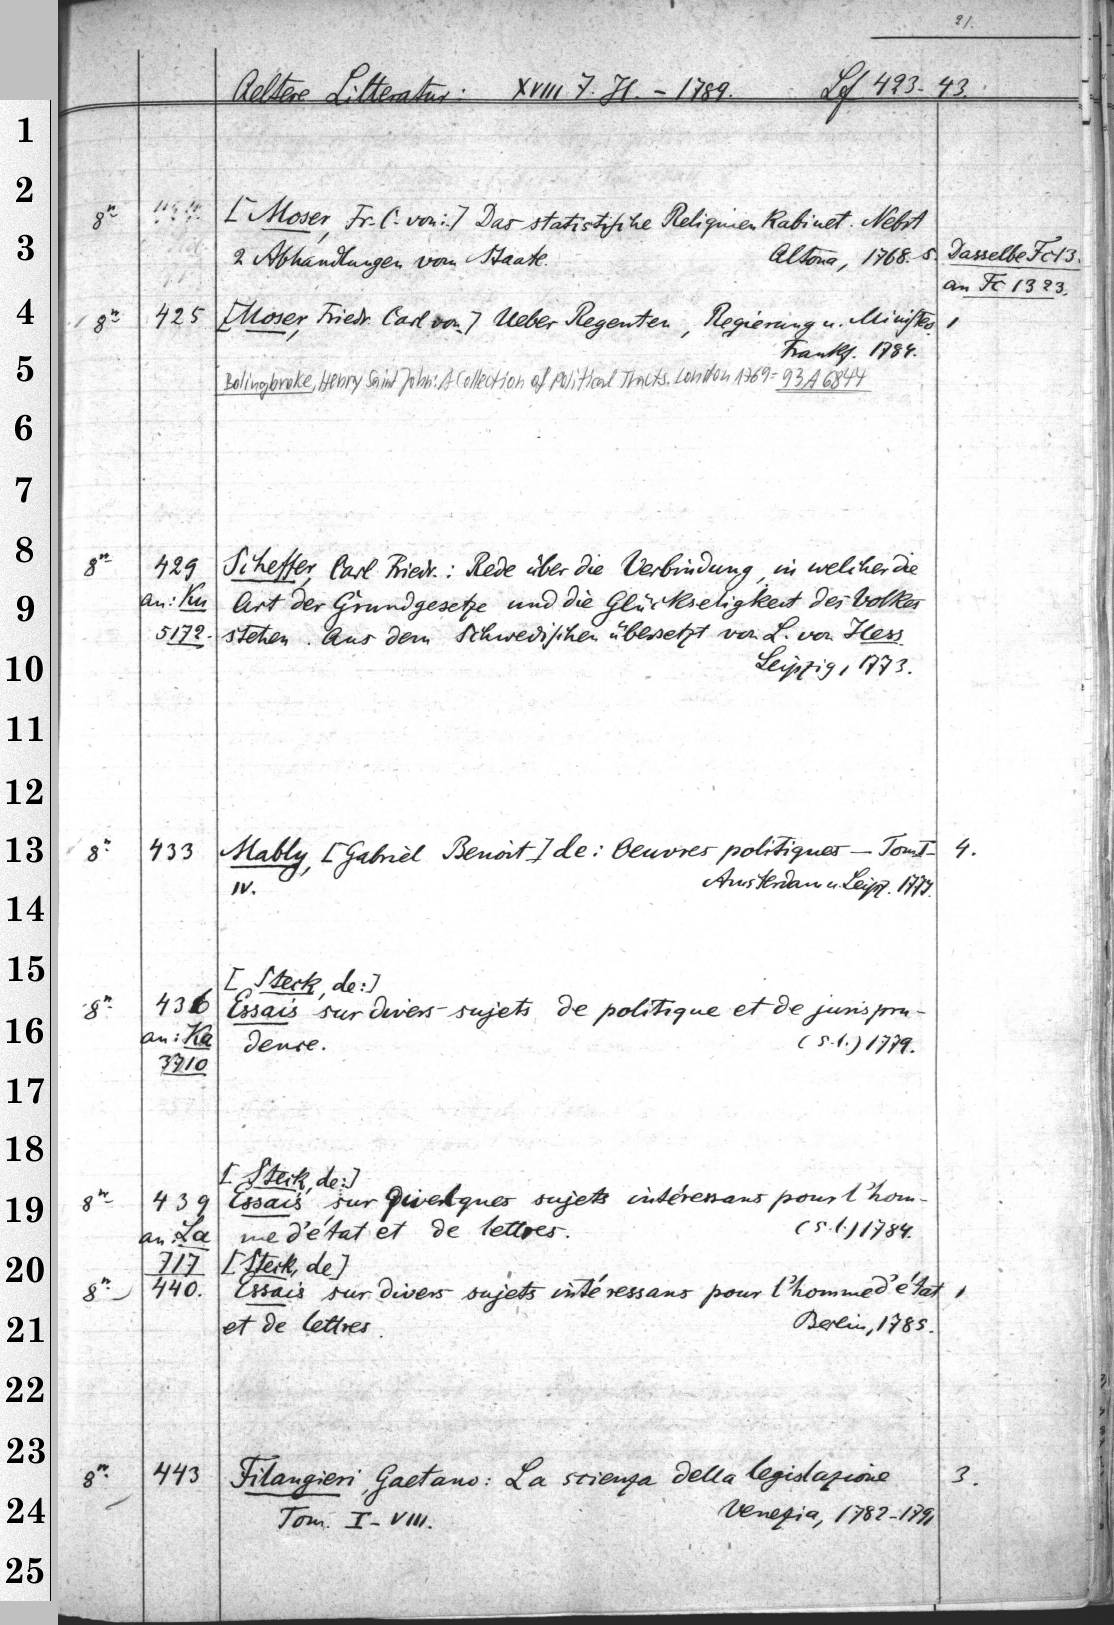 21.
Aeltere Litteratur: XVIII J. H. - 1789. Lf 423-43.
1
2
8° [Moser, Fr. C. von:] Das statistische Reliquien Kabinet. Nebst
3
2 Abhandlungen vom Staate. Altona, 1768. 8. Dasselbe Fc 13.
an Fc 1323.
4
8° 425 [Moser, Friedr. Carl von] Ueber Regenten, Regierung u. Minister. 1
Frankf. 1784.
5
Bolingbroke, Henry Saint John: A Collection of Political Tracts. London 1769 = 93 A 6844
6
7
8
8° 429 Scheffer, Carl Friedr.: Rede über die Verbindung, in welcher die
9
an: Ku Art der Grundgesetze und die Glückseligkeit des Volkes
5172. stehen. Aus dem Schwedischen übersetzt von L. von Hess
10
Leipzig, 1773.
11
12
13
8° 433 Mably, [Gabriel Benoit] de: Oeuvres politiques — Tom. I-4.
IV. Amsterdam u. Leipz. 1777.
14
15
[Steck, de:]
8° 436 Essais sur divers sujets de politique et de jurispru-
16
an: Ka dence. (s.l.) 1779.
3710
17
18
[Steck, de:]
19
8° 439 Essais sur Quelques sujets intéressans pour l'hom-
an: La me d'état et de lettres. (s.l.) 1784.
20
717 [Steck, de]
8° 440. Essais sur divers sujets intéressans pour l'homme d'état 1
21
et de lettres. Berlin, 1785.
22
23
8° 443 Filangieri, Gaetano: La scienza della legislazione 3.
24
Tom. I-VIII. Venezia, 1782-1791
25